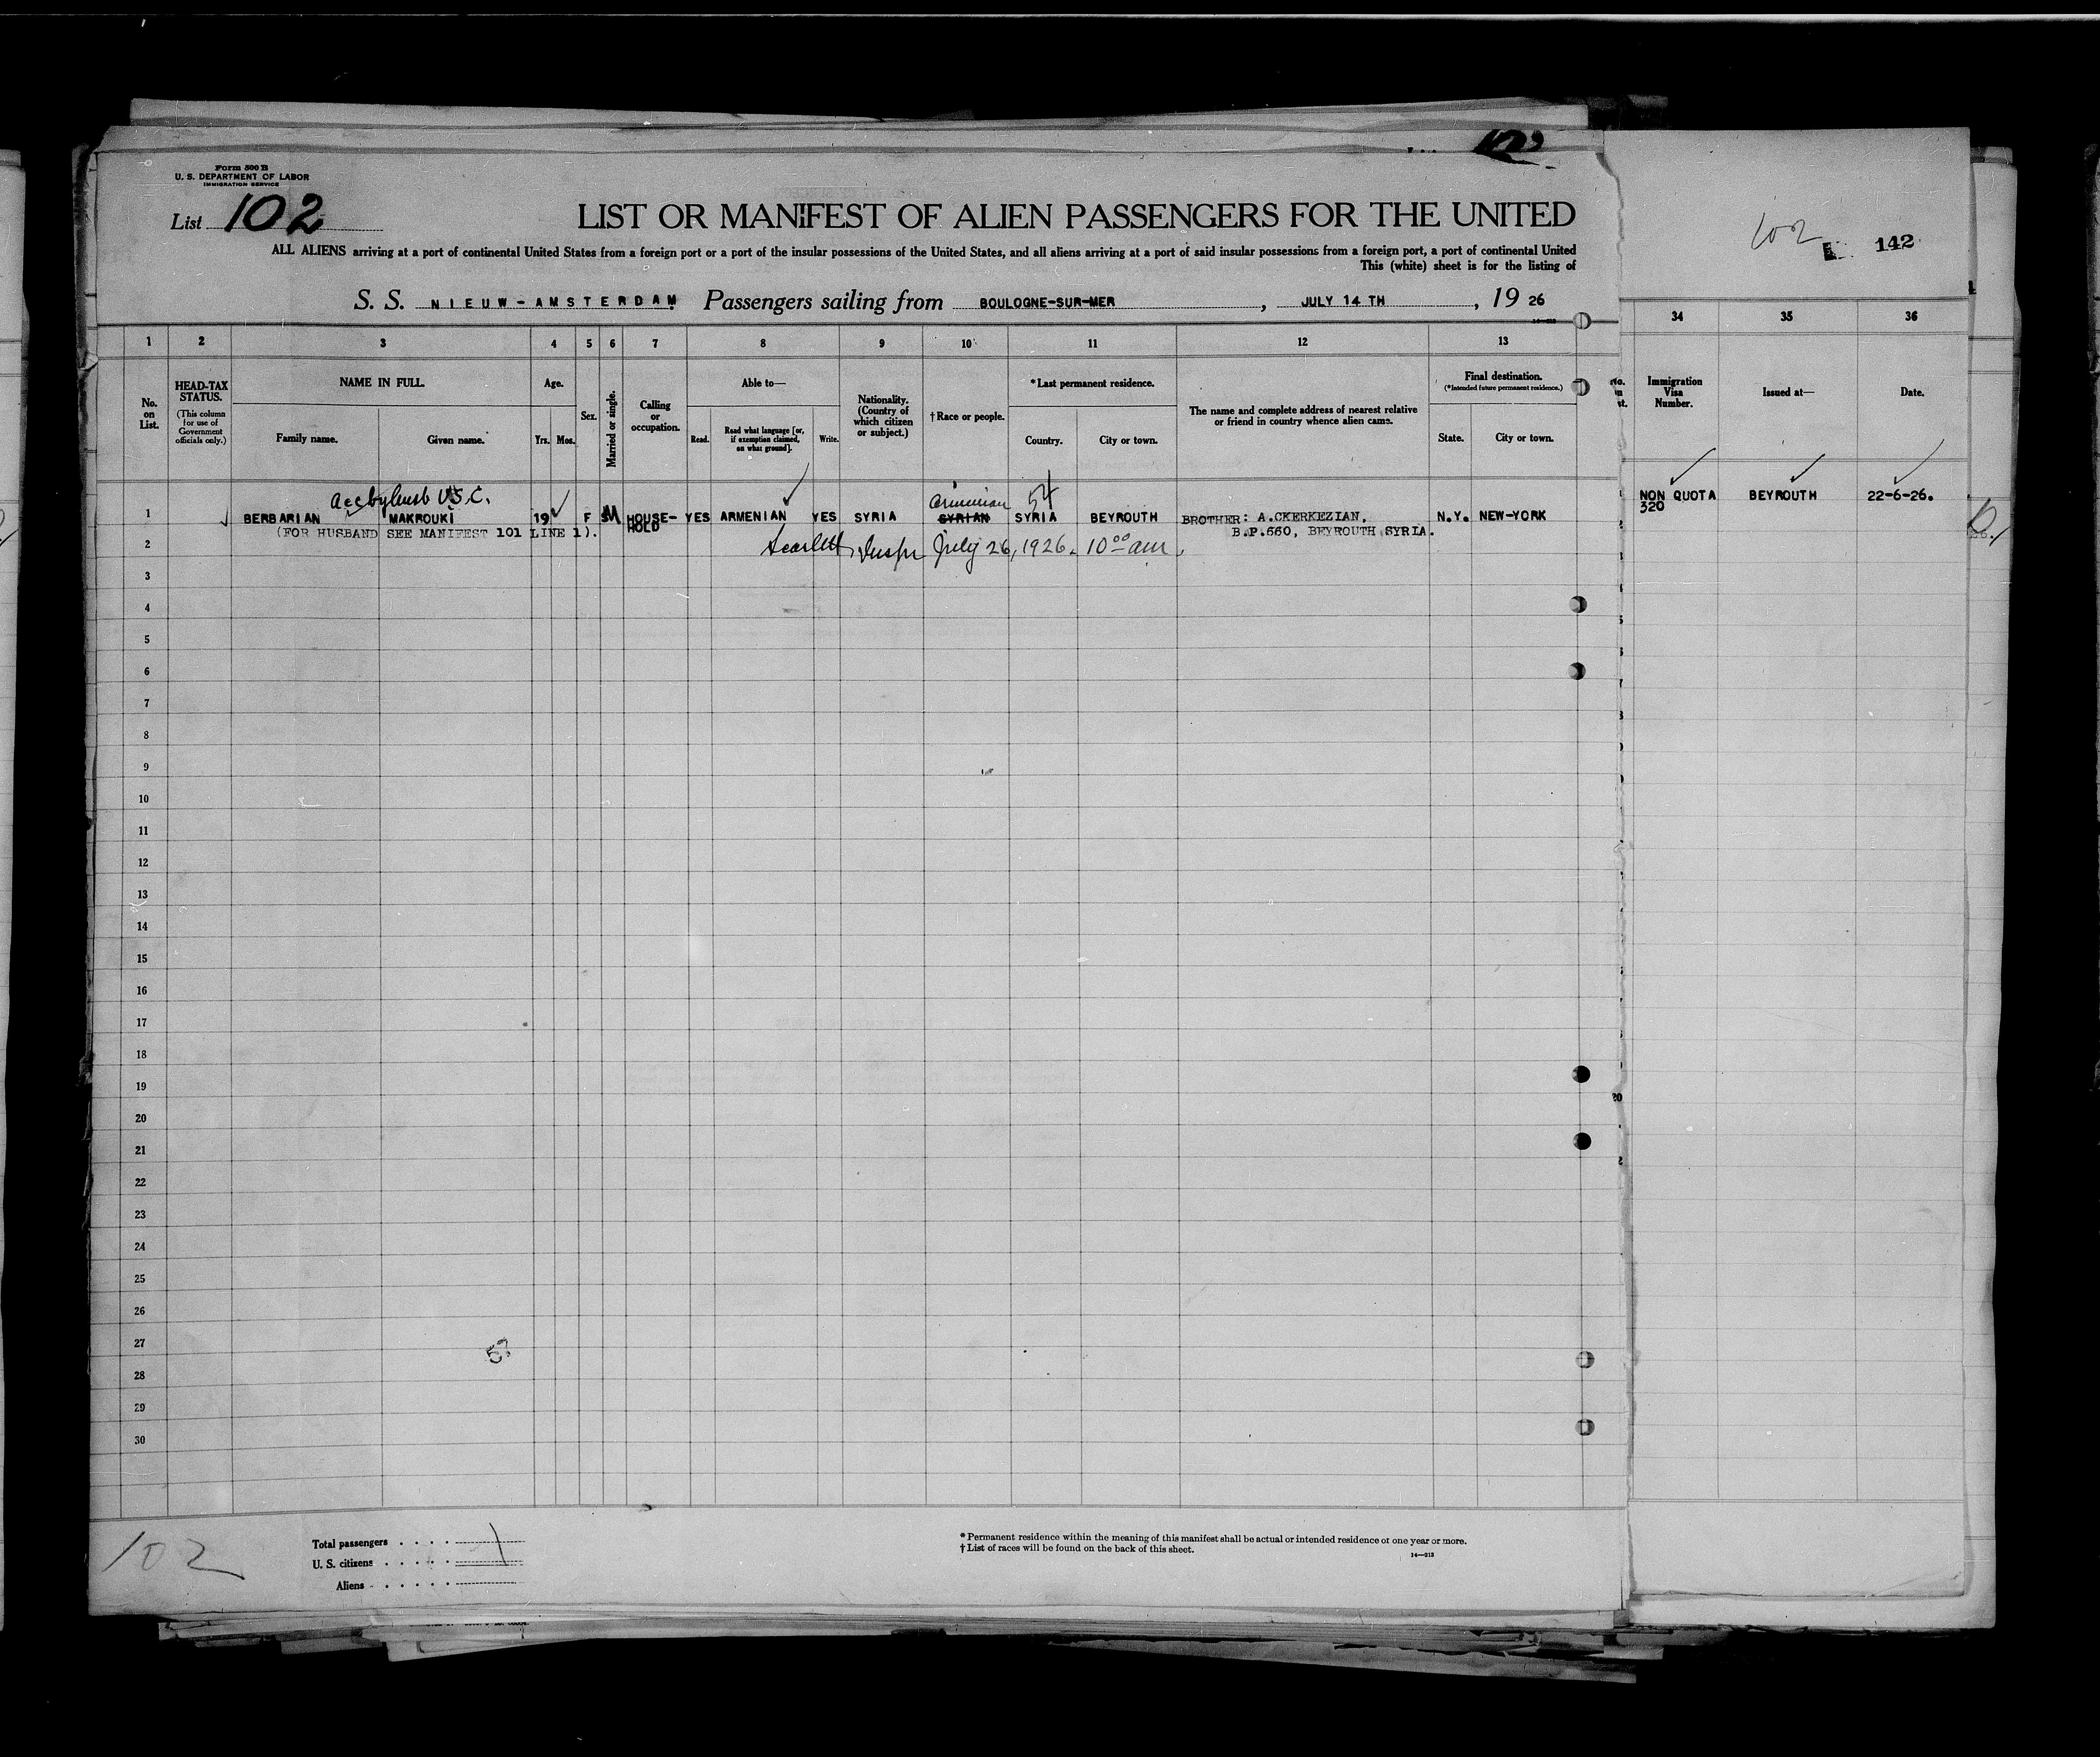 Form 500 B
U. S. DEPARTMENT OF LABOR
IMMIGRATION SERVICE
List 102
LIST OR MANIFEST OF ALIEN PASSENGERS FOR THE UNITED
ALL ALIENS arriving at a port of continental United States from a foreign port or a port of the insular possessions of the United States, and all aliens arriving at a port of said insular possessions from a foreign port, a port of continental United
This (white) sheet is for the listing of
S. S. NIEUW-AMSTERDAM Passengers sailing from BOULOGNE-SUR-MER, JULY 14 TH, 19 26
102 142
1 2 3 4 5 6 7 8 9 10 11 12 13 34 35 36
No. on List.
HEAD-TAX STATUS.
(This column for use of Government officials only.)
NAME IN FULL.
Family name. Given name.
Age.
Yrs. Mos.
Sex.
Married or single.
Calling or occupation.
Able to—
Read. Read what language [or, if exemption claimed, on what ground]. Write.
Nationality. (Country of which citizen or subject.)
†Race or people.
*Last permanent residence.
Country. City or town.
The name and complete address of nearest relative or friend in country whence alien came.
Final destination.
(*Intended future permanent residence.)
State. City or town.
Immigration Visa Number.
Issued at—
Date.
U.S.C. Armenian 54
1 BERBARIAN MAKROUKI 19 F M HOUSE-HOLD YES ARMENIAN YES SYRIA SYRIAN SYRIA BEYROUTH BROTHER: A.CKERKEZIAN, N.Y. NEW-YORK NON QUOTA 320 BEYROUTH 22-6-26.
(FOR HUSBAND SEE MANIFEST 101 LINE 1). B.P.660, BEYROUTH SYRIA.
2 Scarlett, Inspr July 26, 1926. 10 00 am.
3
4
5
6
7
8
9
10
11
12
13
14
15
16
17
18
19
20
21
22
23
24
25
26
27
28
29
30
102
Total passengers
U. S. citizens
Aliens
*Permanent residence within the meaning of this manifest shall be actual or intended residence of one year or more.
†List of races will be found on the back of this sheet.
14—313